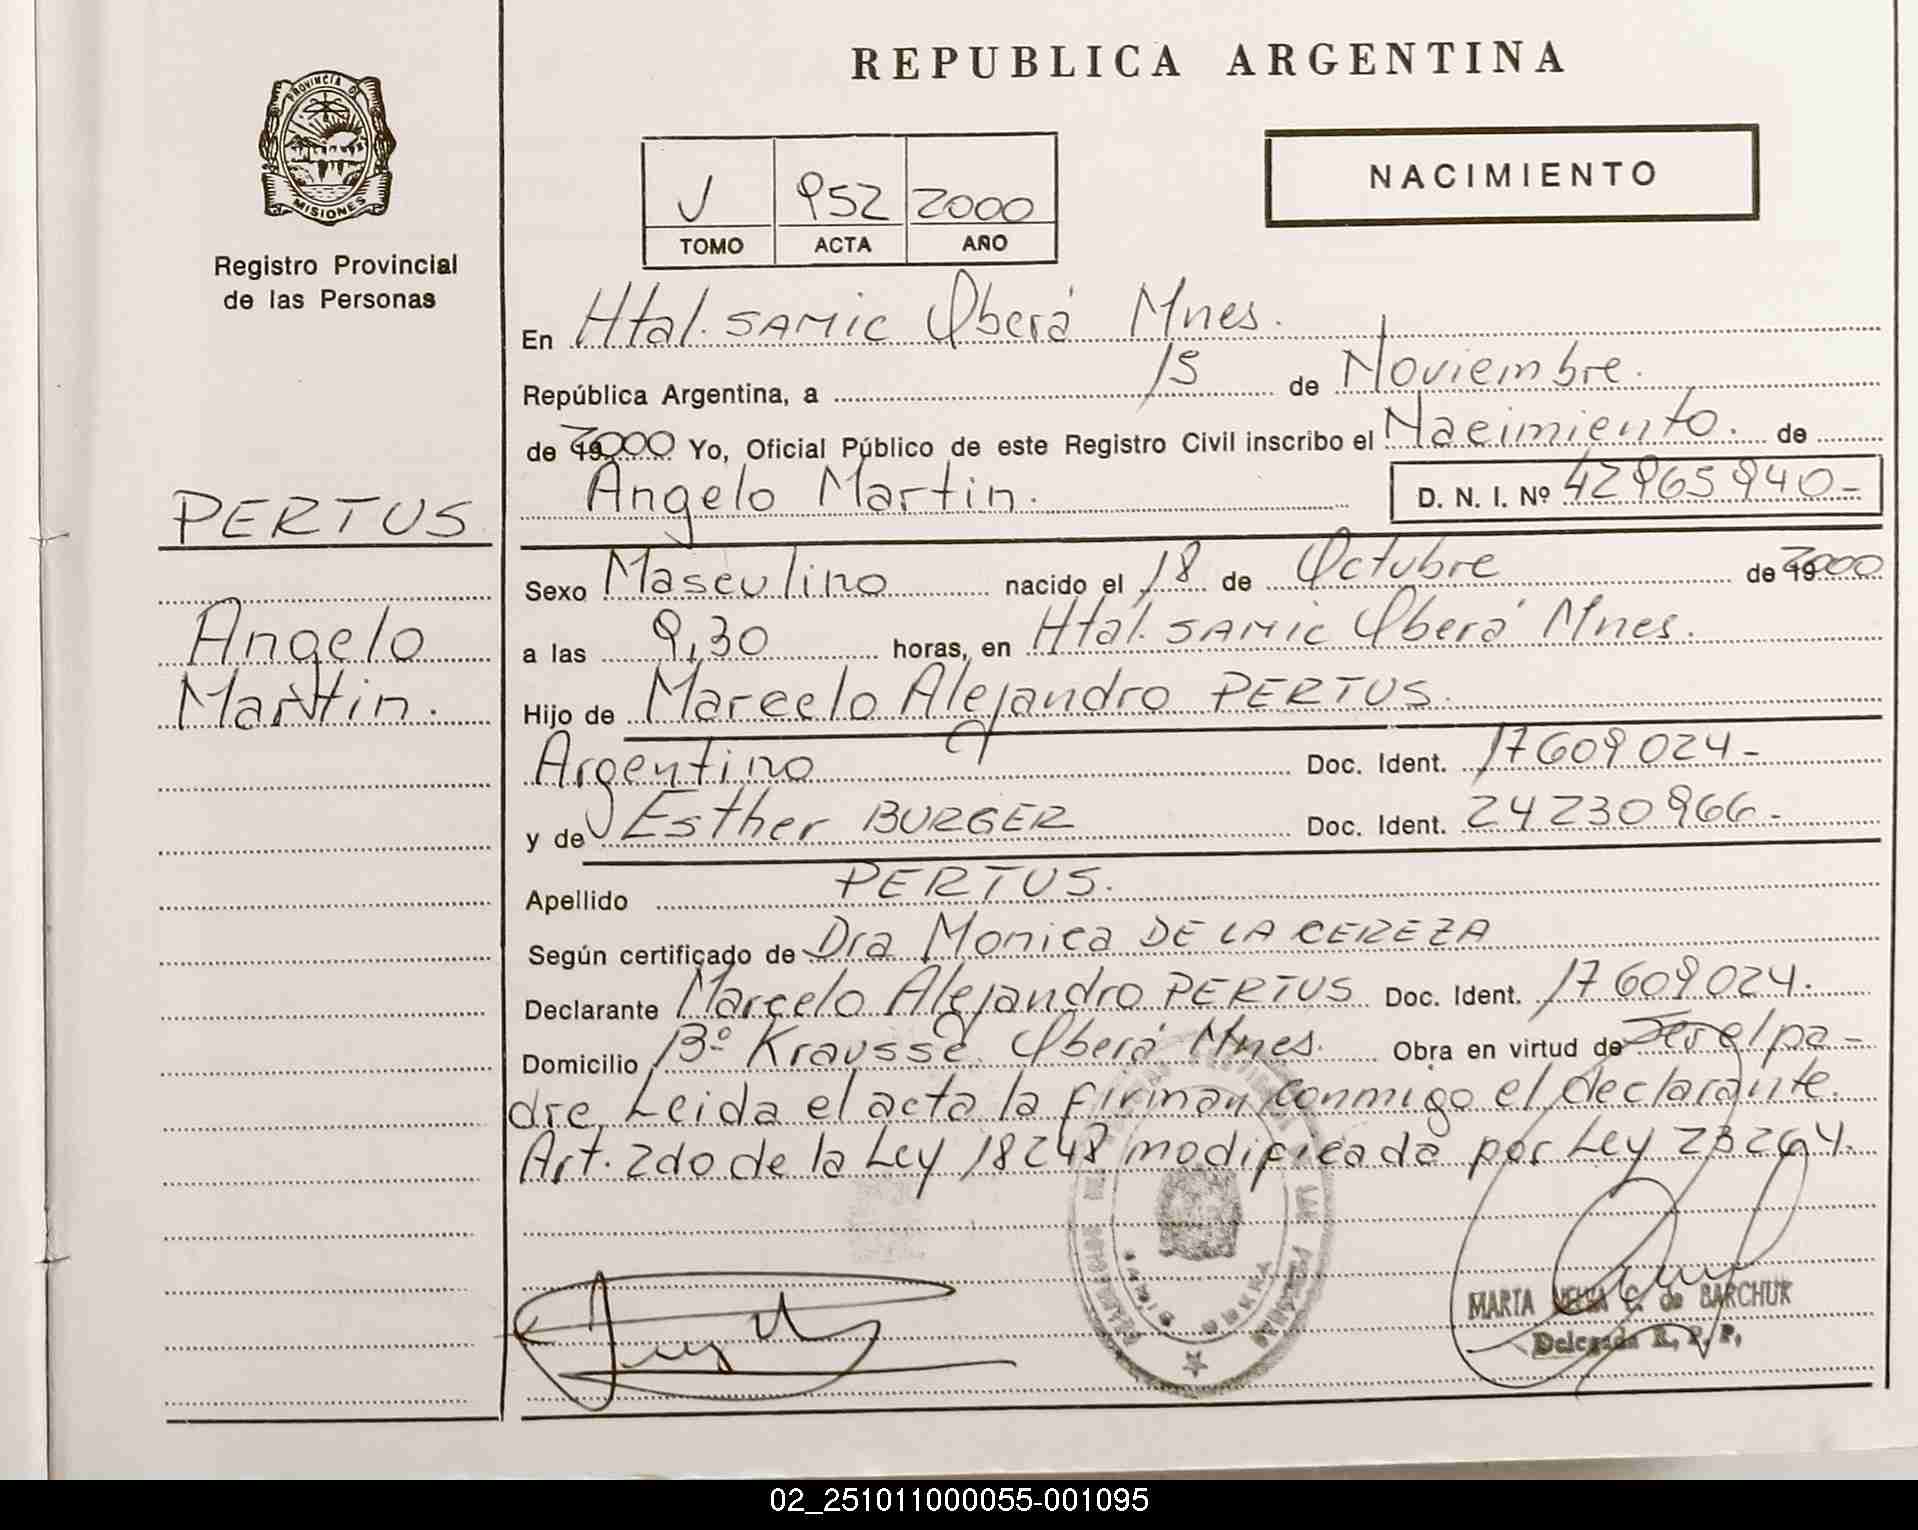 REPUBLICA ARGENTINA
PROVINCIA DE
MISIONES
Registro Provincial
de las Personas
V 952 2000
TOMO ACTA AÑO
NACIMIENTO
En Htal. SAMIC Oberá Mnes.
República Argentina, a 15 de Noviembre.
de 2000 Yo, Oficial Público de este Registro Civil inscribo el Nacimiento. de
Angelo Martin. D. N. I. Nº 42965940-
PERTUS
Angelo
Martin.
Sexo Masculino nacido el 18 de Octubre de 2000
a las 9,30 horas, en Htal. SAMIC Oberá Mnes.
Hijo de Marcelo Alejandro PERTUS.
Argentino Doc. Ident. 17609024-
y de Esther BURGER Doc. Ident. 24230966-
Apellido PERTUS.
Según certificado de Dra Monica DE LA CEREZA
Declarante Marcelo Alejandro PERTUS Doc. Ident. 17609024.
Domicilio Bº Krausse. Oberá Mnes. Obra en virtud de Ser el pa-
dre, Leida el acta la firman conmigo el declarante.
Art. 2do de la Ley 18248 modificada por Ley 23264.
MARTA C. de BARCHUK
Delegada R. P. P.
02_251011000055-001095